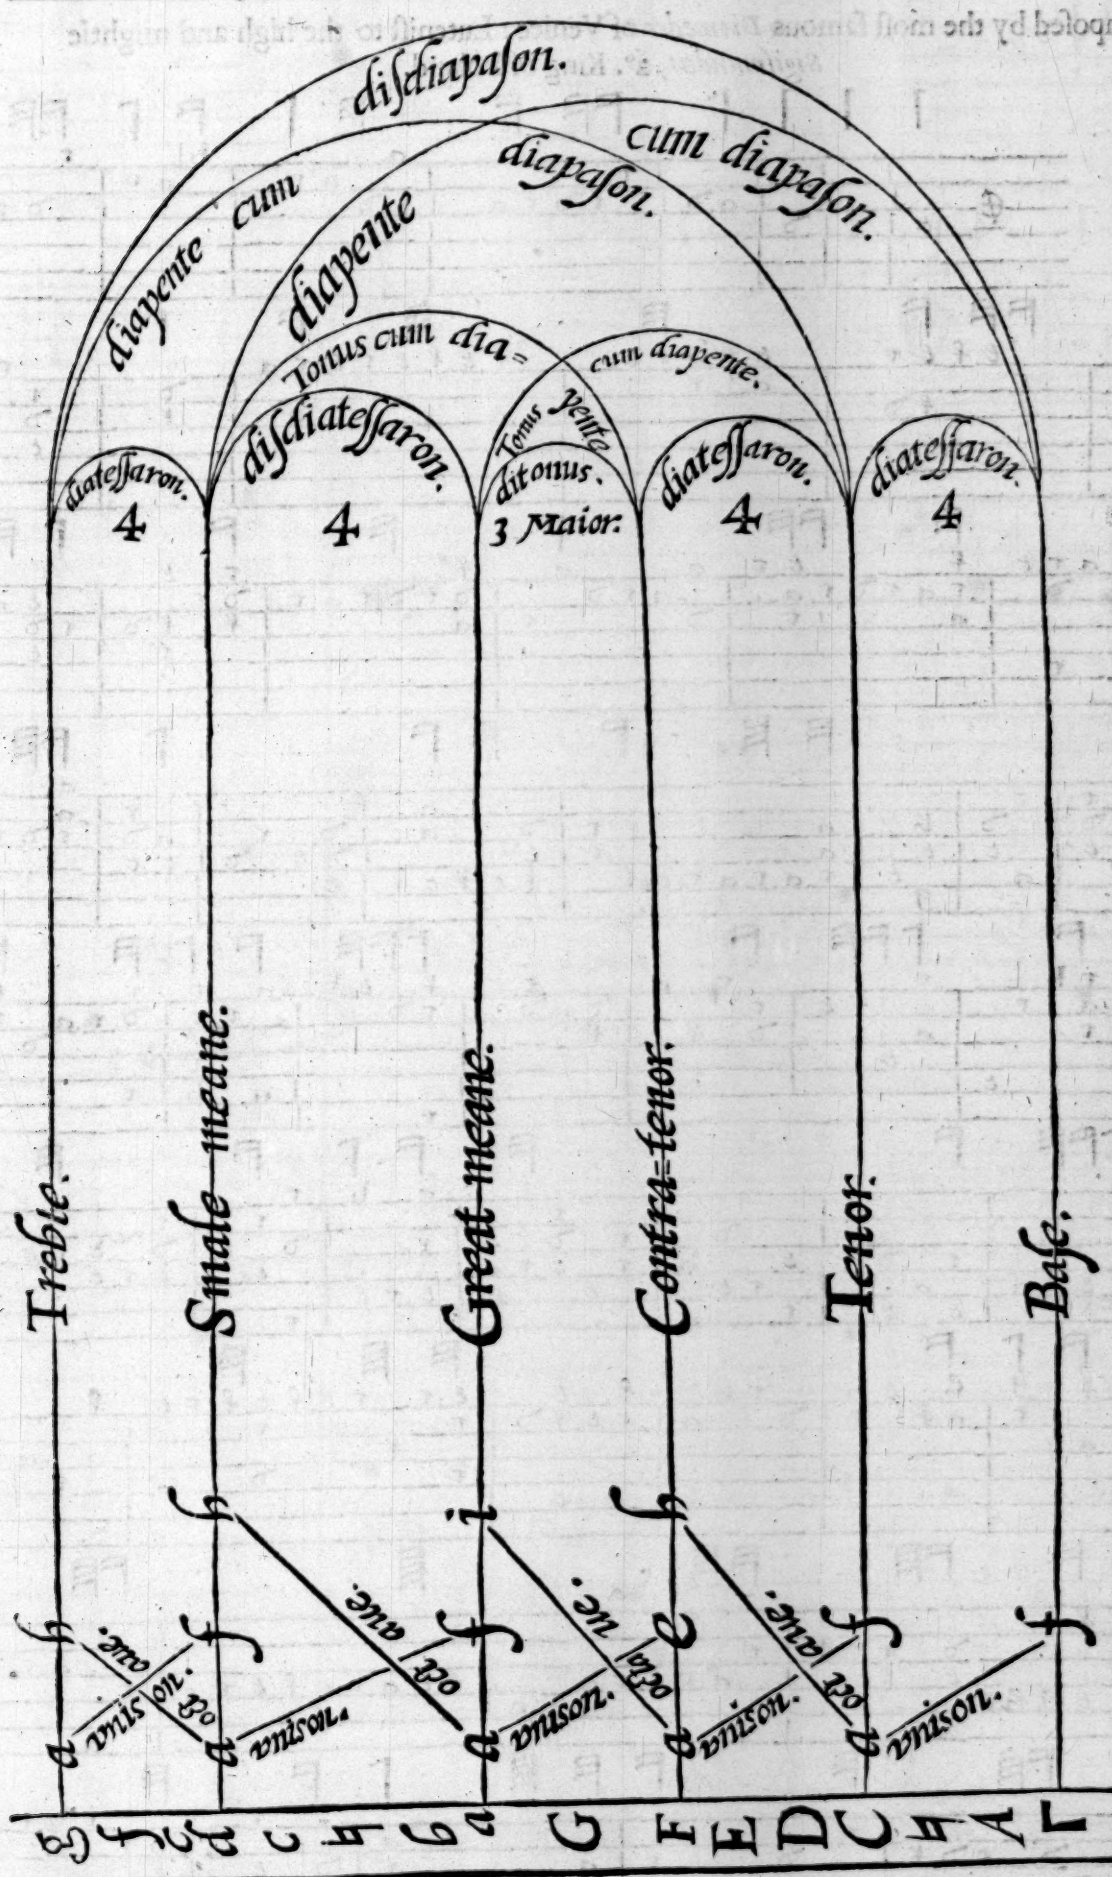 diſdiapaſon.
diapente cum diapaſon.
diapente cum diapaſon.
Tonus cum dia=
pente
Tonus cum diapente.
diateſſaron.
4
diſdiateſſaron.
4
ditonus.
3 Maior.
diateſſaron.
4
diateſſaron.
4
Treble.
Smale meane.
Great meane.
Contra=tenor.
Tenor.
Baſe.
h h i h
f f e f f
octaue.
octaue.
octaue.
octaue.
vnison.
vnison.
vnison.
vnison.
a a a a a
g f e d c ♮ b a G F E D C ♮ A Γ